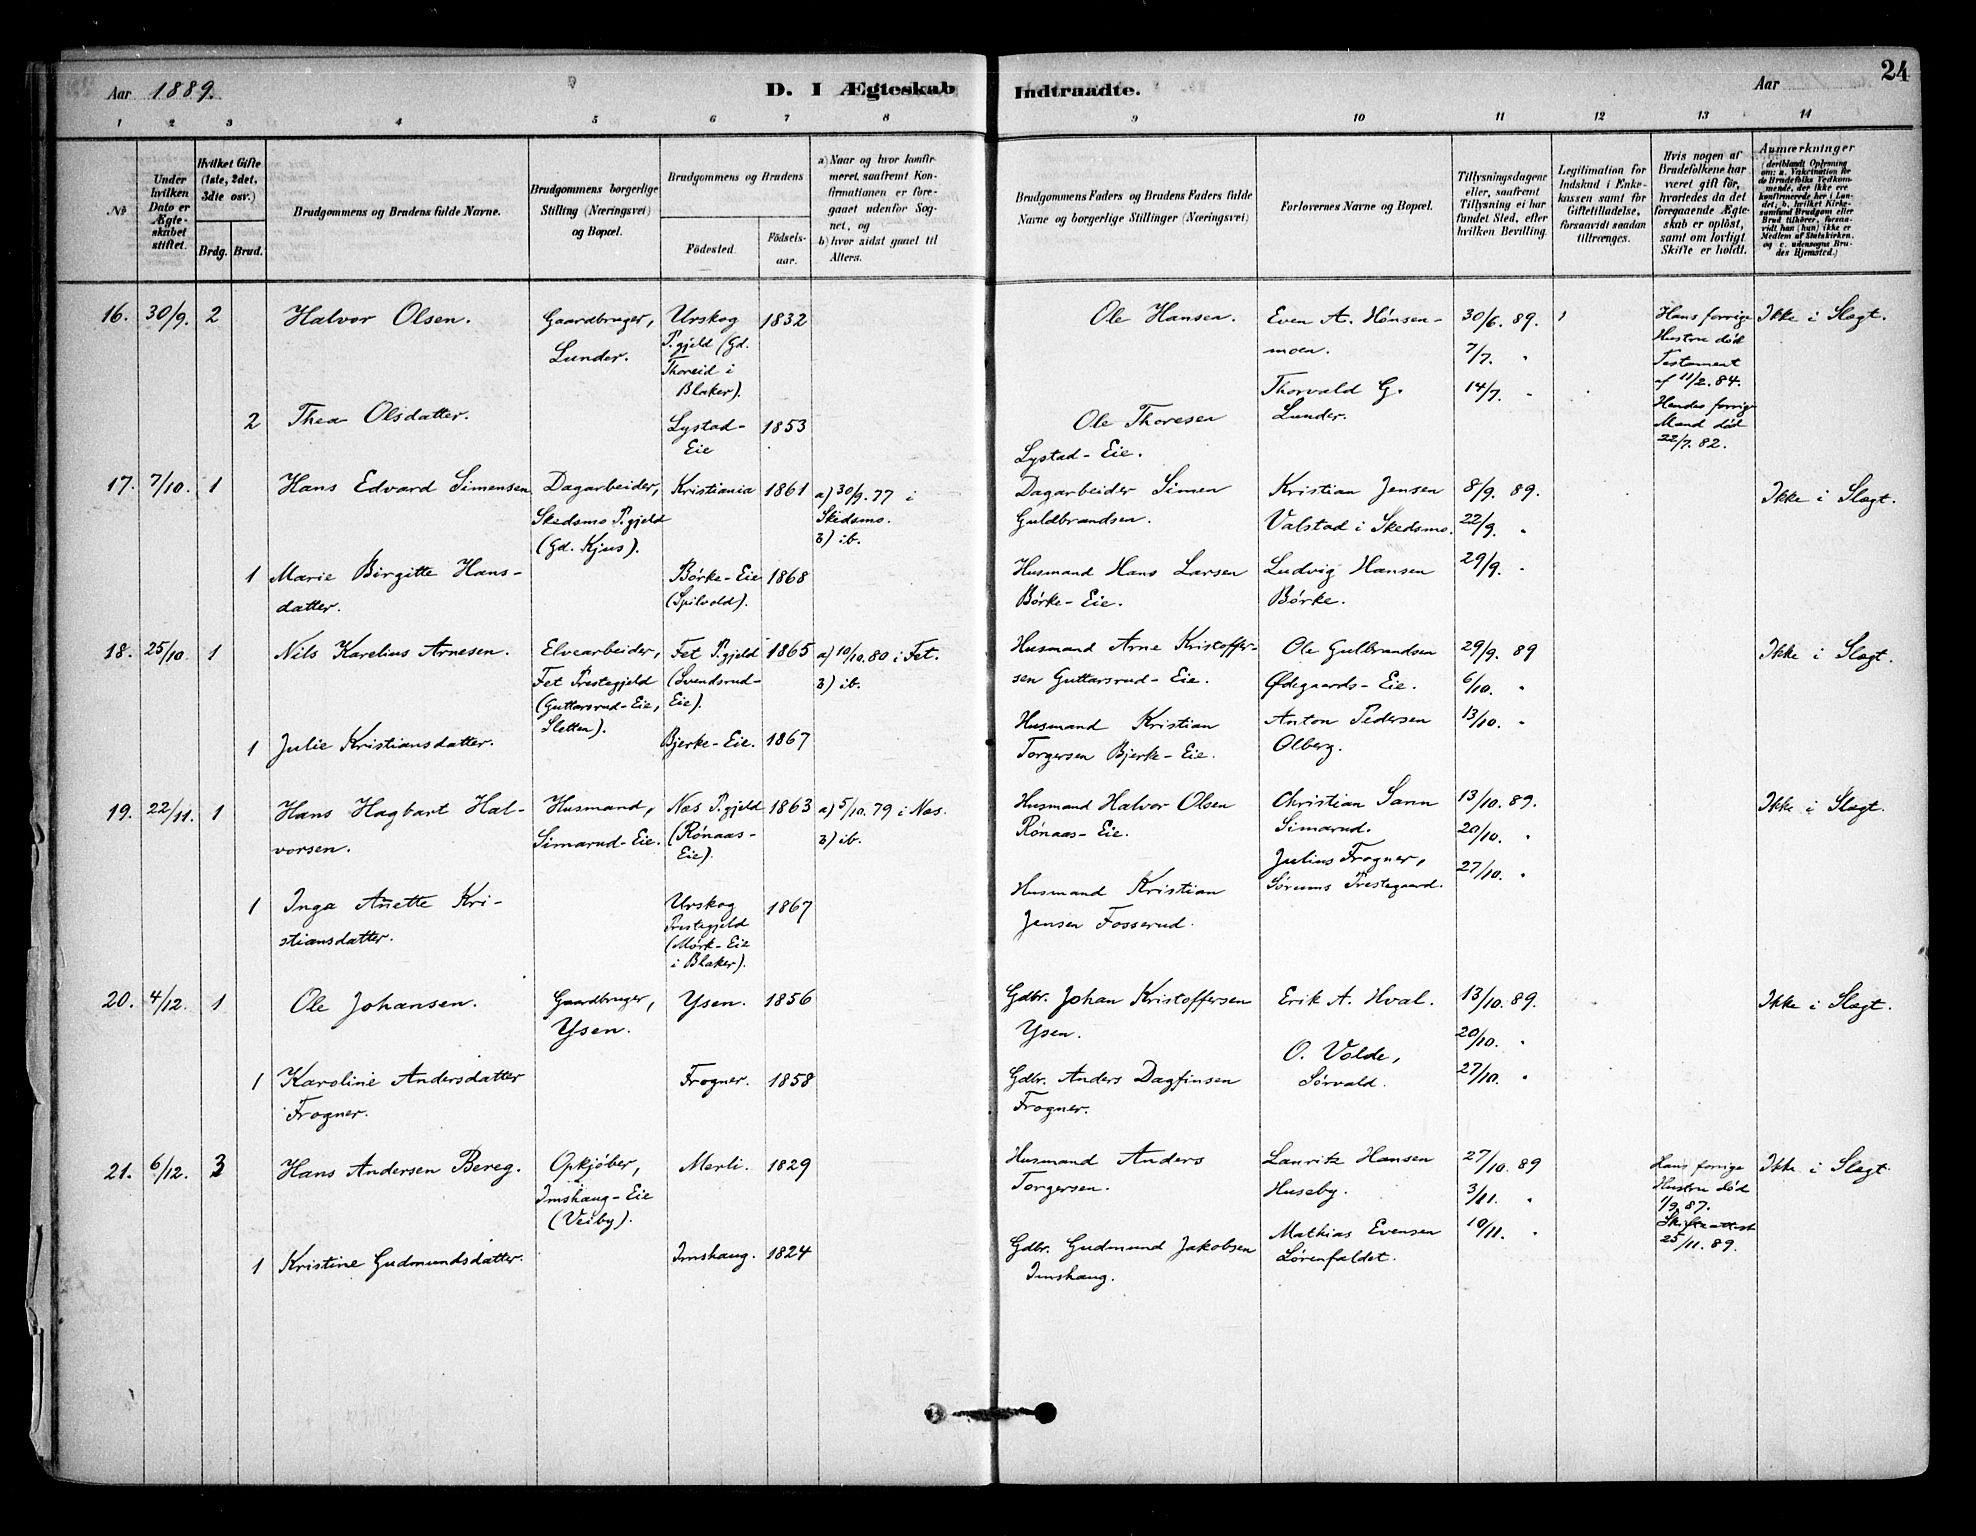 Aar 1889. D. I Ægteskab Indtraadte. Aar 24
1 2 3 4 5 6 7 8 9 10 11 12 13 14
No
Under hvilken Dato er Ægteskabet stiftet.
Hvilket Gifte (1ste, 2det, 3die osv.)
Brdg. Brud.
Brudgommens og Brudens fulde Navne.
Brudgommens borgerlige Stilling (Næringsvei) og Bopæl.
Brudgommens og Brudens
Fødested. Fødselsaar.
a) Naar og hvor konfirmeret, saafremt Konfirmationen er foregaaet udenfor Sognet, og
b) hvor sidst gaaet til Alters.
Brudgommens Faders og Brudens Faders fulde Navne og borgerlige Stillinger (Næringsvei)
Forlovernes Navne og Bopæl.
Tillysningsdagene eller, saafremt Tillysning ei har fundet Sted, efter hvilken Bevilling.
Legitimation for Indskud i Enkekassen samt for Giftetilladelse, forsaavidt saadan tiltrænges.
Hvis nogen af Brudefolkene har været gift før, hvorledes da det foregaaende Ægteskab er opløst, samt om lovligt Skifte er holdt.
Anmærkninger
(deriblandt Oplysning om: a. Vakcination for de Brudefolks Vedkommende, der ikke ere konfirmerede her i Landet, b. hvilket Kirkesamfund Brudgom eller Brud tilhører, forsaavidt han (hun) ikke er Medlem af Statskirken, og c. udensogns Brudes Hjemsted.)
16. 30/9. 2 Halvor Olsen.
Gaardbruger,
Lunder.
Urskog
P.gjeld (Gd.
Thoreid i
Blaker).
1832
Ole Hansen.
Even A. Hønsen-
moen.
Thorvald G.
Lunder.
30/6. 89.
7/7. "
14/7. "
Hans forrige
Hustru død
Testament
af 11/2. 84.
Hendes forrige
Mand død
22/7. 82.
Ikke i Slægt.
2 Thea Olsdatter.
Lystad-
Eie
1853
Ole Thoresen
Lystad-Eie.
17. 7/10. 1 Hans Edvard Simensen
Dagarbeider,
Skedsmo P.gjeld
(Gd. Kjus).
Kristiania 1861
a) 30/9. 77 i
Skedsmo.
b) ib.
Dagarbeider Simen
Guldbrandsen.
Kristian Jensen
Valstad i Skedsmo.
8/9. 89.
22/9. "
29/9. "
Ikke i Slægt.
1 Marie Birgitte Hans-
datter.
Børke-Eie
(Spilvold).
1868
Husmand Hans Larsen
Børke-Eie.
Ludvig Hansen
Børke.
18. 25/10. 1 Nils Karelius Arnesen.
Elvearbeider,
Fet Prestegjeld
(Guttarsrud-Eie,
Sletten).
Fet P.gjeld
(Svendsrud-
Eie).
1865
a) 10/10. 80 i Fet.
b) ib.
Husmand Arne Kristoffer-
sen Guttarsrud-Eie.
Ole Gulbrandsen
Ødegaards-Eie.
29/9. 89
6/10. "
13/10. "
Ikke i Slægt.
1 Julie Kristiansdatter.
Bjerke-Eie. 1867
Husmand Kristian
Torgersen Bjerke-Eie.
Anton Pedersen
Olberg.
19. 22/11. 1 Hans Hagbart Hal-
vorsen.
Husmand,
Simarud-Eie.
Næs P.gjeld
(Rønaas-
Eie).
1863
a) 5/10. 79 i Næs.
b) ib.
Husmand Halvor Olsen
Rønaas-Eie.
Christian Sann
Simarud.
Julius Frogner,
Sørums Prestegaard.
13/10. 89.
20/10. "
27/10. "
Ikke i Slægt.
1 Inga Anette Kri-
stiansdatter.
Urskog
Prestegjeld
(Mørk-Eie
i Blaker).
1867
Husmand Kristian
Jensen Fosserud.
20. 4/12. 1 Ole Johansen.
Gaardbruger,
Ysen.
Ysen. 1856
Gdbr. Johan Kristoffersen
Ysen.
Erik A. Hval.
O. Valde,
Sørvald.
13/10. 89.
20/10. "
27/10. "
Ikke i Slægt.
1 Karoline Andersdatter
Frogner.
Frogner. 1858
Gdbr. Anders Dagfinsen
Frogner.
21. 6/12. 3 Hans Andersen Bereg.
Opkjøber,
Imshaug-Eie
(Veiby).
Merli. 1829
Husmand Anders
Torgersen.
Lauritz Hansen
Huseby.
Mathias Evensen
Sørenfaldet.
27/10. 89
3/11. "
10/11. "
Hans forrige
Hustru død
1/9. 87.
Skifteattest
25/11. 89.
Ikke i Slægt.
1 Kristine Gudmundsdatter.
Imshaug. 1824
Gdbr. Gudmund Jakobsen
Imshaug.